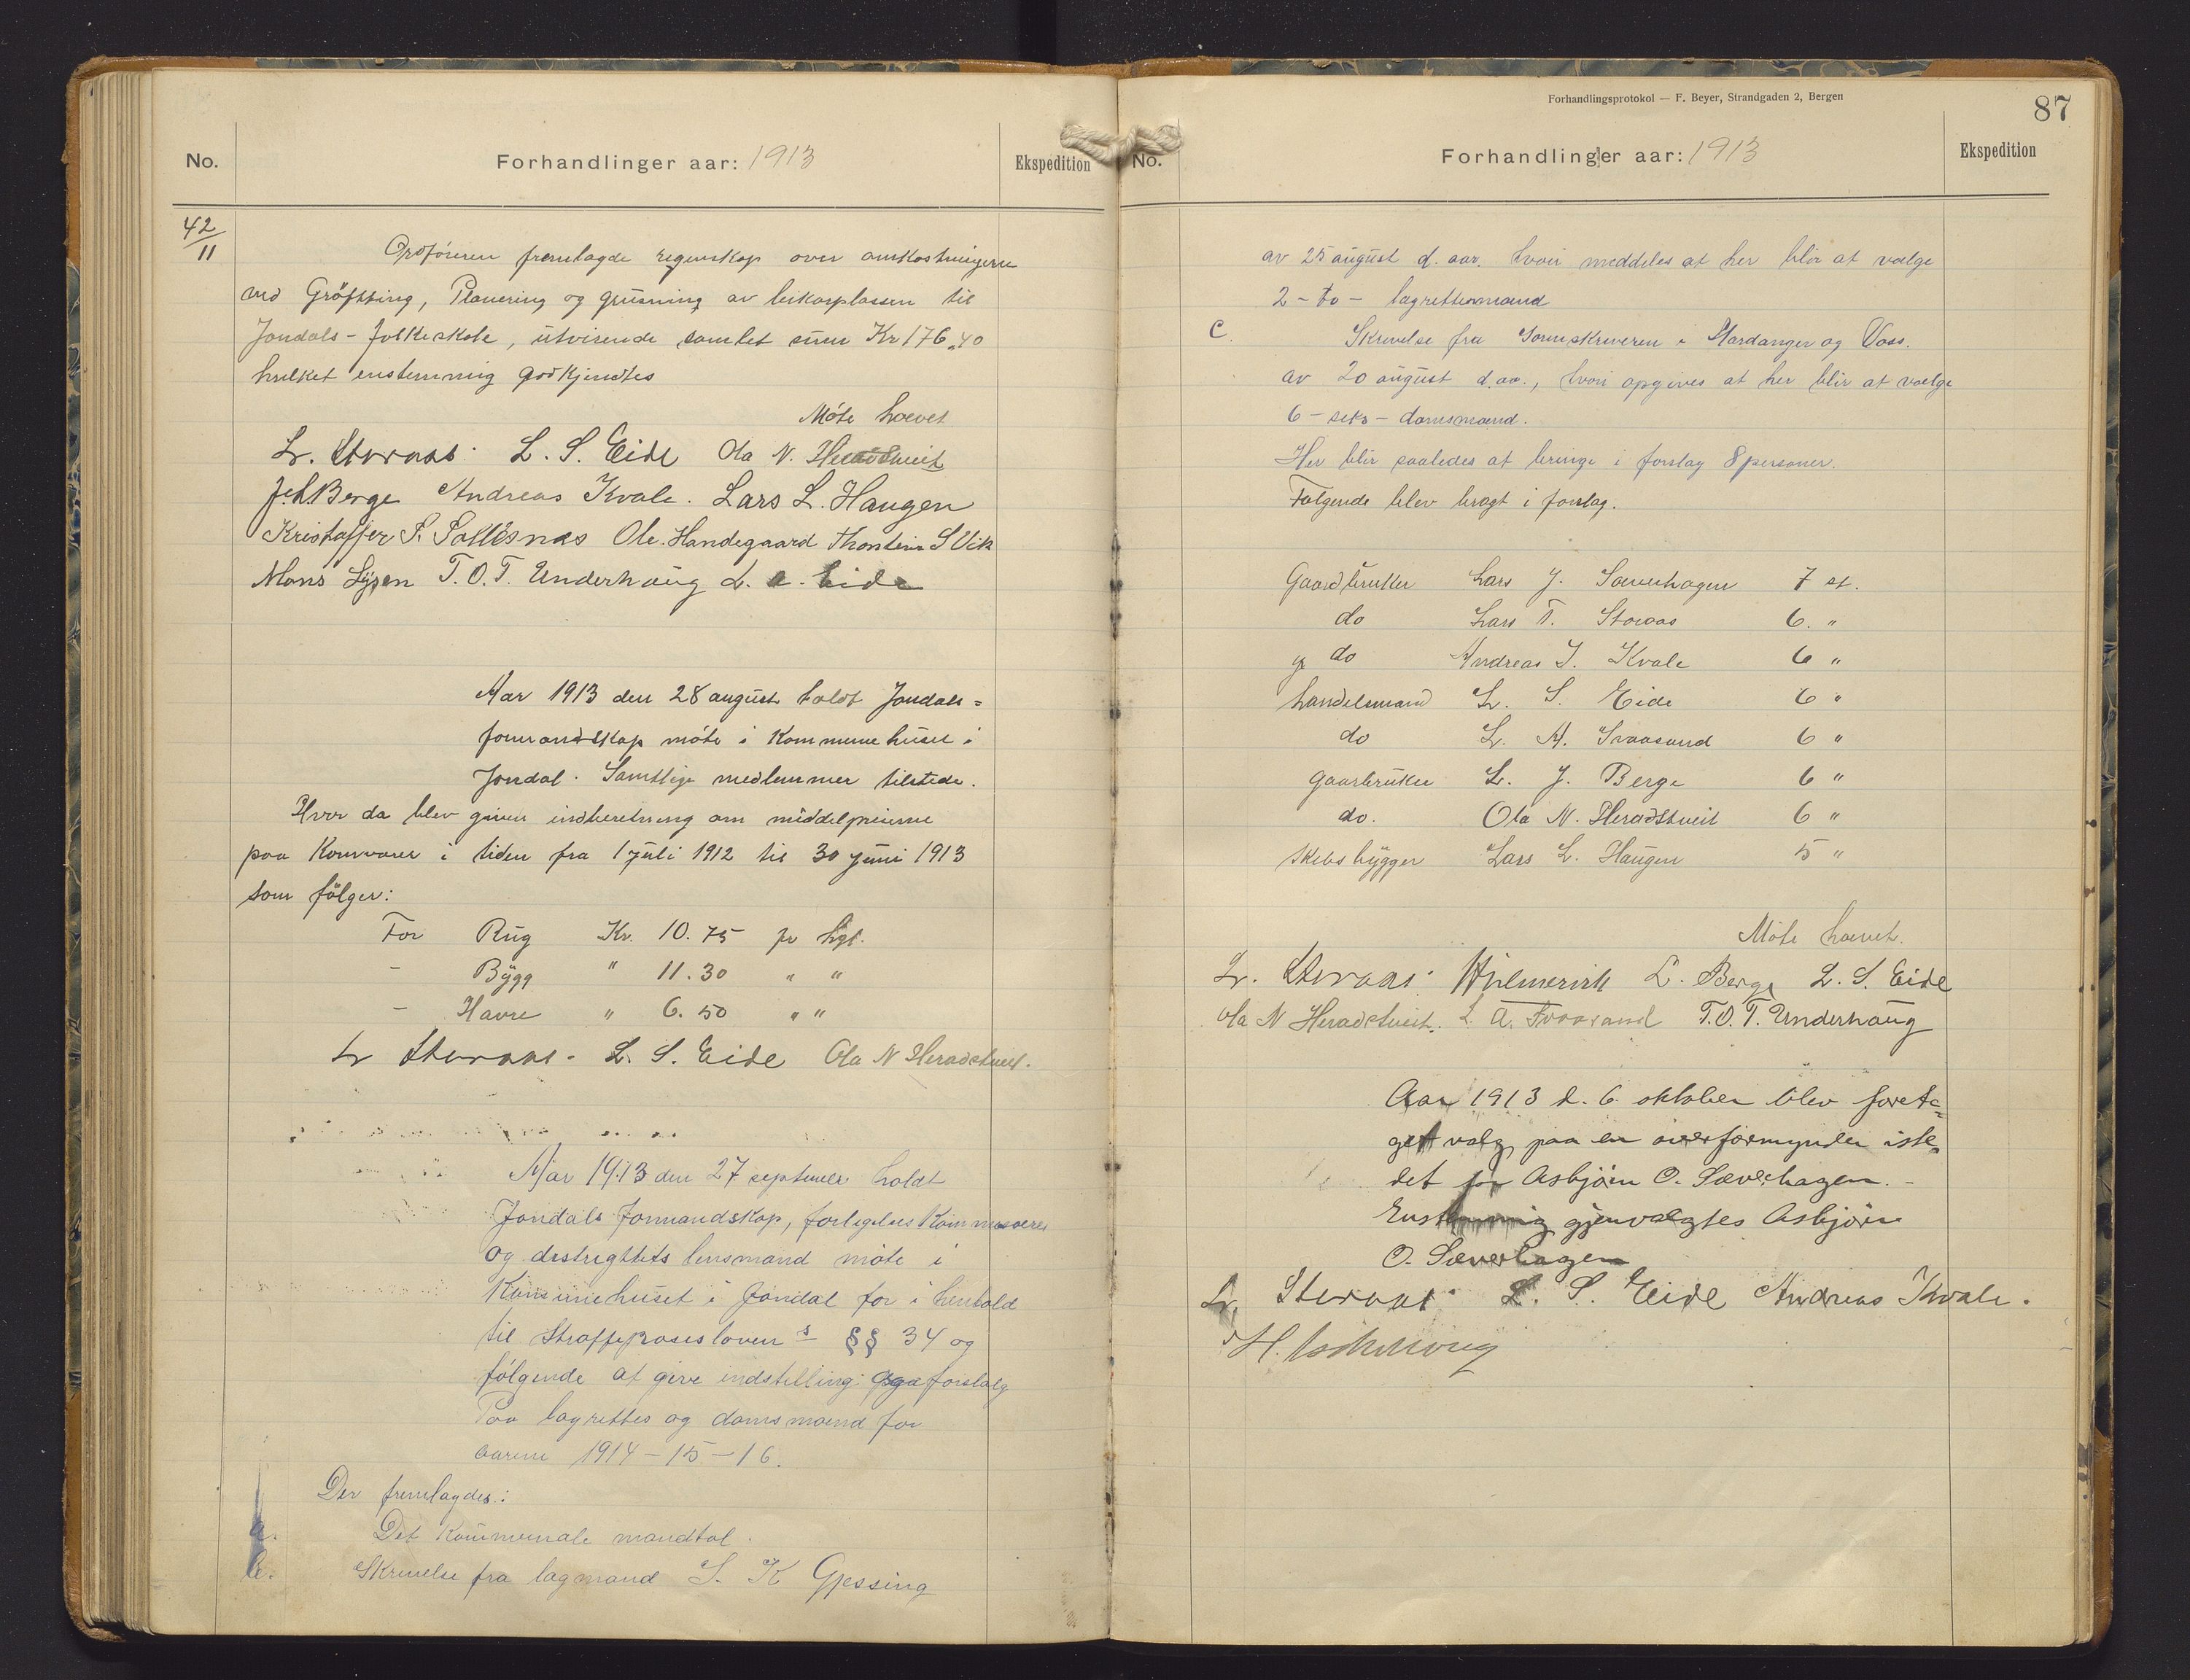 No.
Forhandlinger aar: 1913
Ekspedition
42/11
Ordføreren fremlagde regnskap over omkostningerne
ved Grøftting, Planering og grusning av leikarplassen til
Jondals-folkeskole, utvisende samlet sum Kr 176,40
hvilket enstemmig godkjendtes
Møte hævet
Lr. Storaas. L. S. Eide Ola N. Heradstveit
J.L. Berge Andreas Kvale. Lars L. Haugen
Kristoffer S. Solesnes Ole. Handegaard Thorstein S Vik
Mons Lysen T.O.T. Underhaug L. A. Eide
Aar 1913 den 28 august holdt Jondals=
formandskap møte i Kommunehuset i
Jondal. Samtlige medlemmer tilstede.
Hvor da blev given indberetning om middelpriserne
paa Kornvarer i tiden fra 1 juli 1912 til 30 juni 1913
som følger:
For Rug Kr. 10.75 pr hgt.
- Bygg " 11.30 " "
- Havre " 6.50 " "
Lr Storaas. L. S. Eide Ola N Heradstveit.
Aar 1913 den 27 septemer holdt
Jondals Formandskap, forligelses Kommisærer
og destrigttets lensmand møte i
Komunehuset i Jondal for i henhold
til Straffeproseslovens §§ 34 og
følgende at give indstilling forslalg
Paa lagrettes og domsmænd for
aarene 1914-15-16.
Der fremlagdes:
a. Det Kommunale mandtal.
b. Skrivelse fra lagmand S. K Gjessing
Forhandlingsprotokol — F. Beyer, Strandgaden 2, Bergen
87
No.
Forhandlinger aar: 1913
Ekspedition
av 25 august d. aar. hvori meddeles at her blir at vælge
2 - to - lagrettemænd
C. Skrivelse fra Sorenskriveren i Hardanger og Voss.
av 20 august d.aa., hvori opgives at her blir at vælge
6 - seks - domsmænd.
Her blir saaledes at bringe i forslag 8 personer.
Følgende blev bragt i forslag.
Gaardbruker Lars J. Sæverhagen 7 st.
do Lars T. Storaas 6. "
do Andreas J. Kvale 6 "
handelsmand L. S. Eide 6 "
do L. A. Svaasand 6 "
gaarbruker L. J. Berge 6 "
do. Ola N. Heradstveit 6 "
skibsbygger Lars L. Haugen 5 "
Møte hævet.
Lr. Storaas. L. Berge L. S. Eide
Ola N Heradstveit. L. A. Svaasand T.O.T. Underhaug
Aar 1913 d. 6 oktober blev foreta=
get valg paa en overformynder iste=
det for Asbjørn O. Sæverhagen. -
Enstemmig gjenvalgtes Asbjørn
O. Sæverhagen
Lr. Storaas L. S. Eide Andreas Kvale.
H.